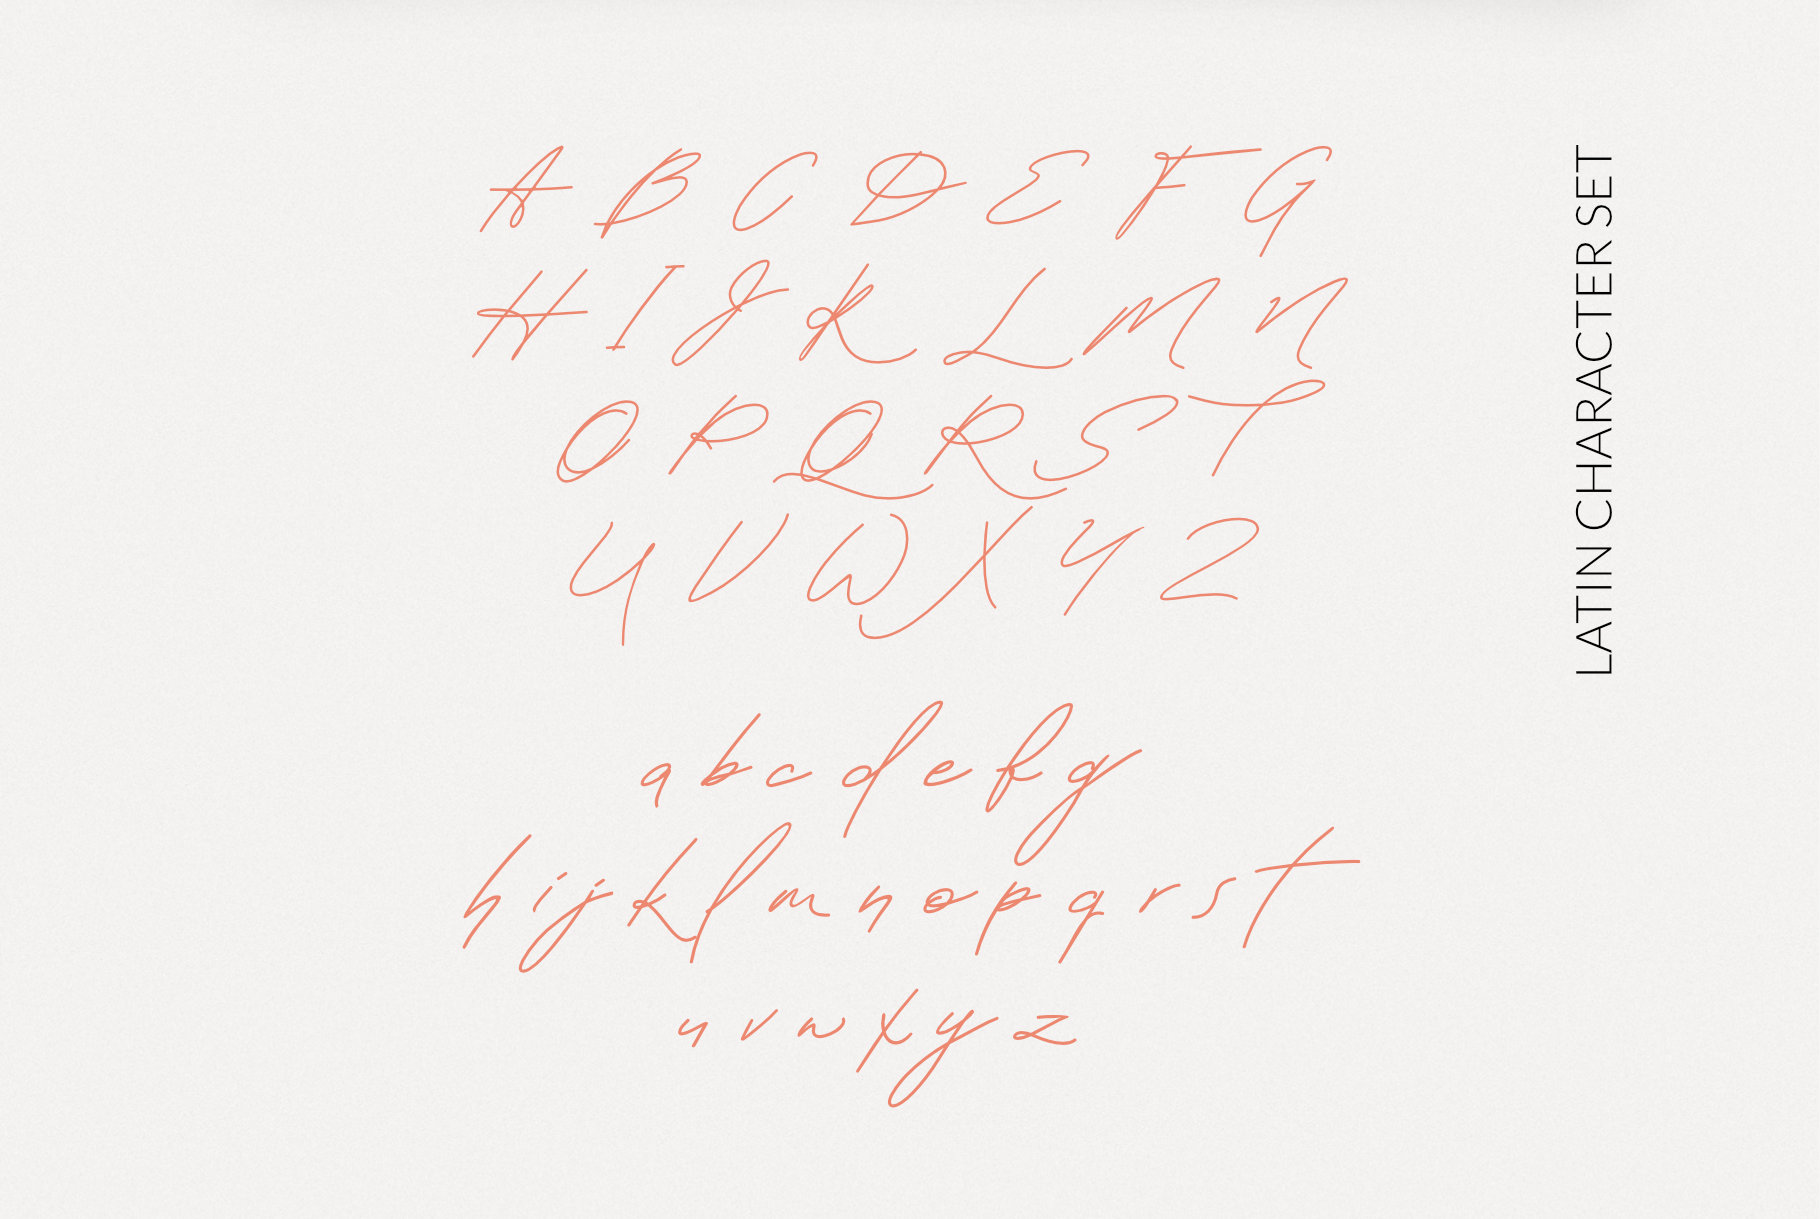 A B C D E F G
H I J K L M N
O P Q R S T
U V W X Y Z
a b c d e f g
h i j k l m n o p q r s t
u v w x y z
LATIN CHARACTER SET